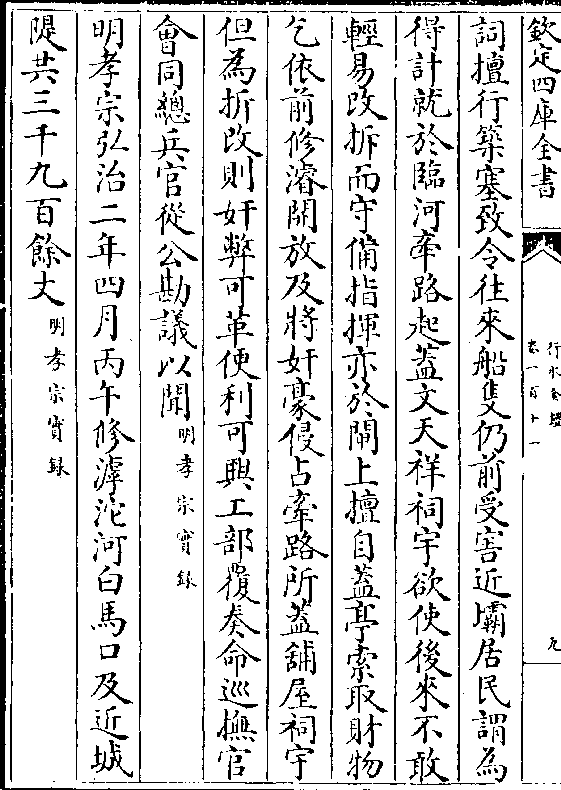 欽定四庫全書
行水金鑑
卷一百十一
九
詞擅行築塞致令往來船隻仍前受害近壩居民謂為
得計就於臨河牽路起蓋文天祥祠宇欲使後來不敢
輕易改拆而守備指揮亦於閘上擅自蓋亭索取財物
乞依前修濬開放及將奸豪侵占牽路所蓋舖屋祠宇
但為折改則奸弊可革便利可興工部覆奏命巡撫官
會同總兵官從公勘議以聞明孝宗實錄
明孝宗弘治二年四月丙午修滹沱河白馬口及近城
隄共三千九百餘丈明孝宗實録